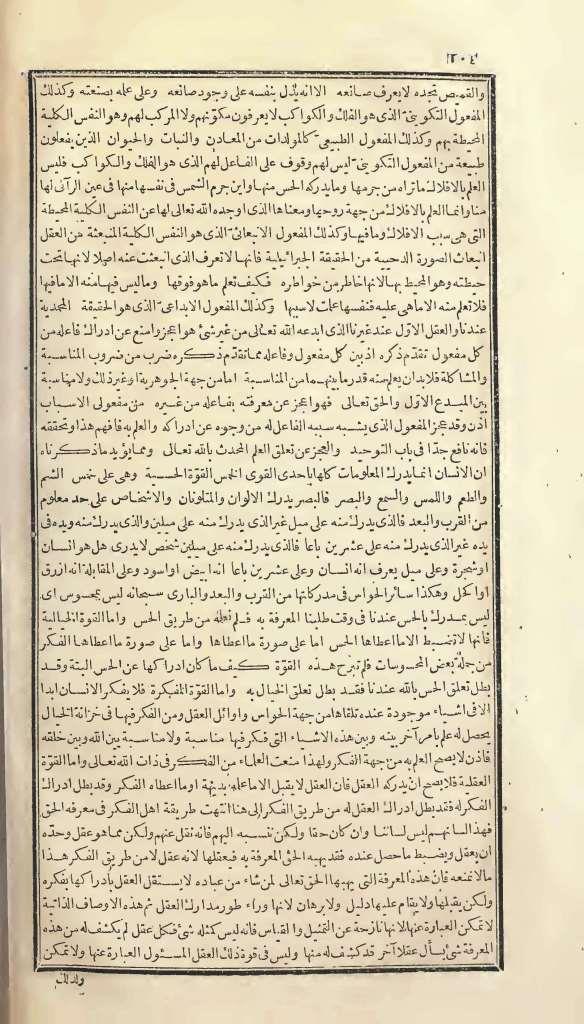 ٢٠٤
والقميص تجده لا يعرف صانعه الا انه يدل بنفسه على وجود صانعه وعلى علمه بصنعته وكذلك
المفعول التكوينى الذى هو الفلك والكواكب لا يعرفون مكونهم ولا المركب لهم وهو النفس الكلية
المحيطة بهم وكذلك المفعول الطبيعى كالمولدات من المعادن والنبات والحيوان الذين يفعلون
طبيعة من المفعول التكوينى ليس لهم وقوف على الفاعل لهم الذى هو الفلك والكواكب فليس
العلم بالافلاك ما تراه من جرمها وما يدركه الحس منها واين جرم الشمس فى نفسها منها فى عين الرآئى لها
منا وانما العلم بالافلاك من جهة روحها ومعناها الذى اوجده الله تعالى لها عن النفس الكلية المحيطة
التى هى سبب الافلاك وما فيها وكذلك المفعول الانبعاثى الذى هو النفس الكلية المنبعثة من العقل
انبعاث الصورة الدحيية من الحقيقة الجبرائيلية فانها لا تعرف الذى انبعثت عنه اصلا لانها تحت
حيطته وهو المحيط بها لانها خاطر من خواطره فكيف تعلم ما هو فوقها وما ليس فيها منه الا ما فيها
فلا تعلم منه الا ما هى عليه فنفسها علمت لا سببها وكذلك المفعول الابداعى الذى هو الحقيقة المحمدية
عندنا والعقل الاول عند غيرنا الذى ابدعه الله تعالى من غير شئ هو اعجز وامنع عن ادراك فاعله من
كل مفعول تقدم ذكره اذ بين كل مفعول وفاعله مما تقدم ذكره ضرب من ضروب المناسبة
والمشاكلة فلا بد ان يعلم منه قدر ما بينهما من المناسبة اما من جهة الجوهرية او غير ذلك ولا مناسبة
بين المبدع الاول والحق تعالى فهو اعجز عن معرفته بفاعله من غيره من مفعولى الاسباب
اذن وقد عجز المفعول الذى يشبه سببه الفاعل له من وجوه عن ادراكه والعلم به فافهم هذا وتحققه
فانه نافع جدا فى باب التوحيد والعجز عن تعلق العلم المحدث بالله تعالى ومما يؤيد ما ذكرناه
ان الانسان انما يدرك المعلومات كلها باحدى القوى الخمس القوة الحسية وهى على خمس الشم
والطعم واللمس والسمع والبصر فالبصر يدرك الالوان والمتلونات والاشخاص على حد معلوم
من القرب والبعد فالذى يدرك منه على ميل غير الذى يدرك منه على ميلين والذى يدرك منه ويده فى
يده غير الذى يدرك منه على عشرين باعا فالذى يدرك منه على ميلين شخص لا يدرى هل هو انسان
او شجرة وعلى ميل يعرف انه انسان وعلى عشرين باعا انه ابيض او اسود وعلى المقابلة انه ازرق
او اكحل وهكذا سائر الحواس فى مدركاتها من القرب والبعد والبارى سبحانه ليس بمحسوس اى
ليس بمدرك بالحس عندنا فى وقت طلبنا المعرفة به فلم نعلمه من طريق الحس واما القوة الخيالية
فانها لا تضبط الا ما اعطاها الحس اما على صورة ما اعطاها واما على صورة ما اعطاها الفكر
من حمله بعض المحسوسات فلم تبرح هذه القوة كيف ما كان ادراكها عن الحس البتة وقد
بطل تعلق الحس بالله عندنا فقد بطل تعلق الخيال به واما القوة المفكرة فلا يفكر الانسان ابدا
الا فى اشياء موجودة عنده تلقاها من جهة الحواس واوائل العقل ومن الفكر فيها فى خزانة الخيال
يحصل له علم بامر آخر بينه وبين هذه الاشياء التى فكر فيها مناسبة ولا مناسبة بين الله وبين خلقه
فاذن لا يصح العلم به من جهة الفكر ولهذا منعت العلماء من الفكر فى ذات الله تعالى واما القوة
العقلية فلا يصح ان يدركه العقل فان العقل لا يقبل الا ما علمه بديهة او ما اعطاه الفكر وقد بطل ادراك
الفكر له فقد بطل ادراك العقل له من طريق الفكر الى هنا انتهت طريقة اهل الفكر فى معرفة الحق
فهذا لسانهم ليس لساننا وان كان حقا ولكن ننسبه اليهم فانه نقل عنهم ولكن مما هو عقل وحده
ان يعقل ويضبط ما حصل عنده فقد يهبه الحق المعرفة به فيعقلها لانه عقل لا من طريق الفكر هذا
ما لا نمنعه فان هذه المعرفة التى يهبها الحق تعالى لمن شاء من عباده لا يستقل العقل بادراكها بفكره
ولكن يقبلها ولا يقام عليها دليل ولا برهان لانها وراء طور مدارك العقل ثم هذه الاوصاف الذاتية
لا تمكن العبارة عنها لانها نازحة عن التمثيل والقياس فانه ليس كمثله شئ فكل عقل لم يكشف له من هذه
المعرفة شئ يسأل عقلا آخر قد كشف له منها وليس فى قوة ذلك العقل المسئول العبارة عنها ولا تمكن
ولذلك